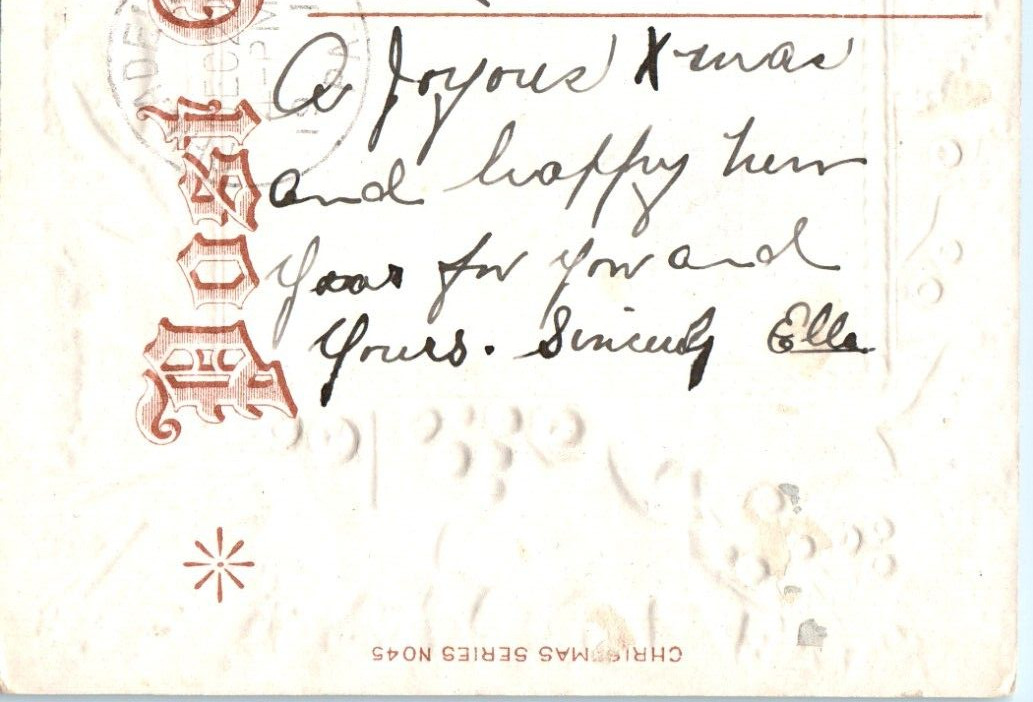 A Joyous Xmas
and happy new
Year for you and
Yours. Sincerely Ella
Post C
CHRISTMAS SERIES NO45